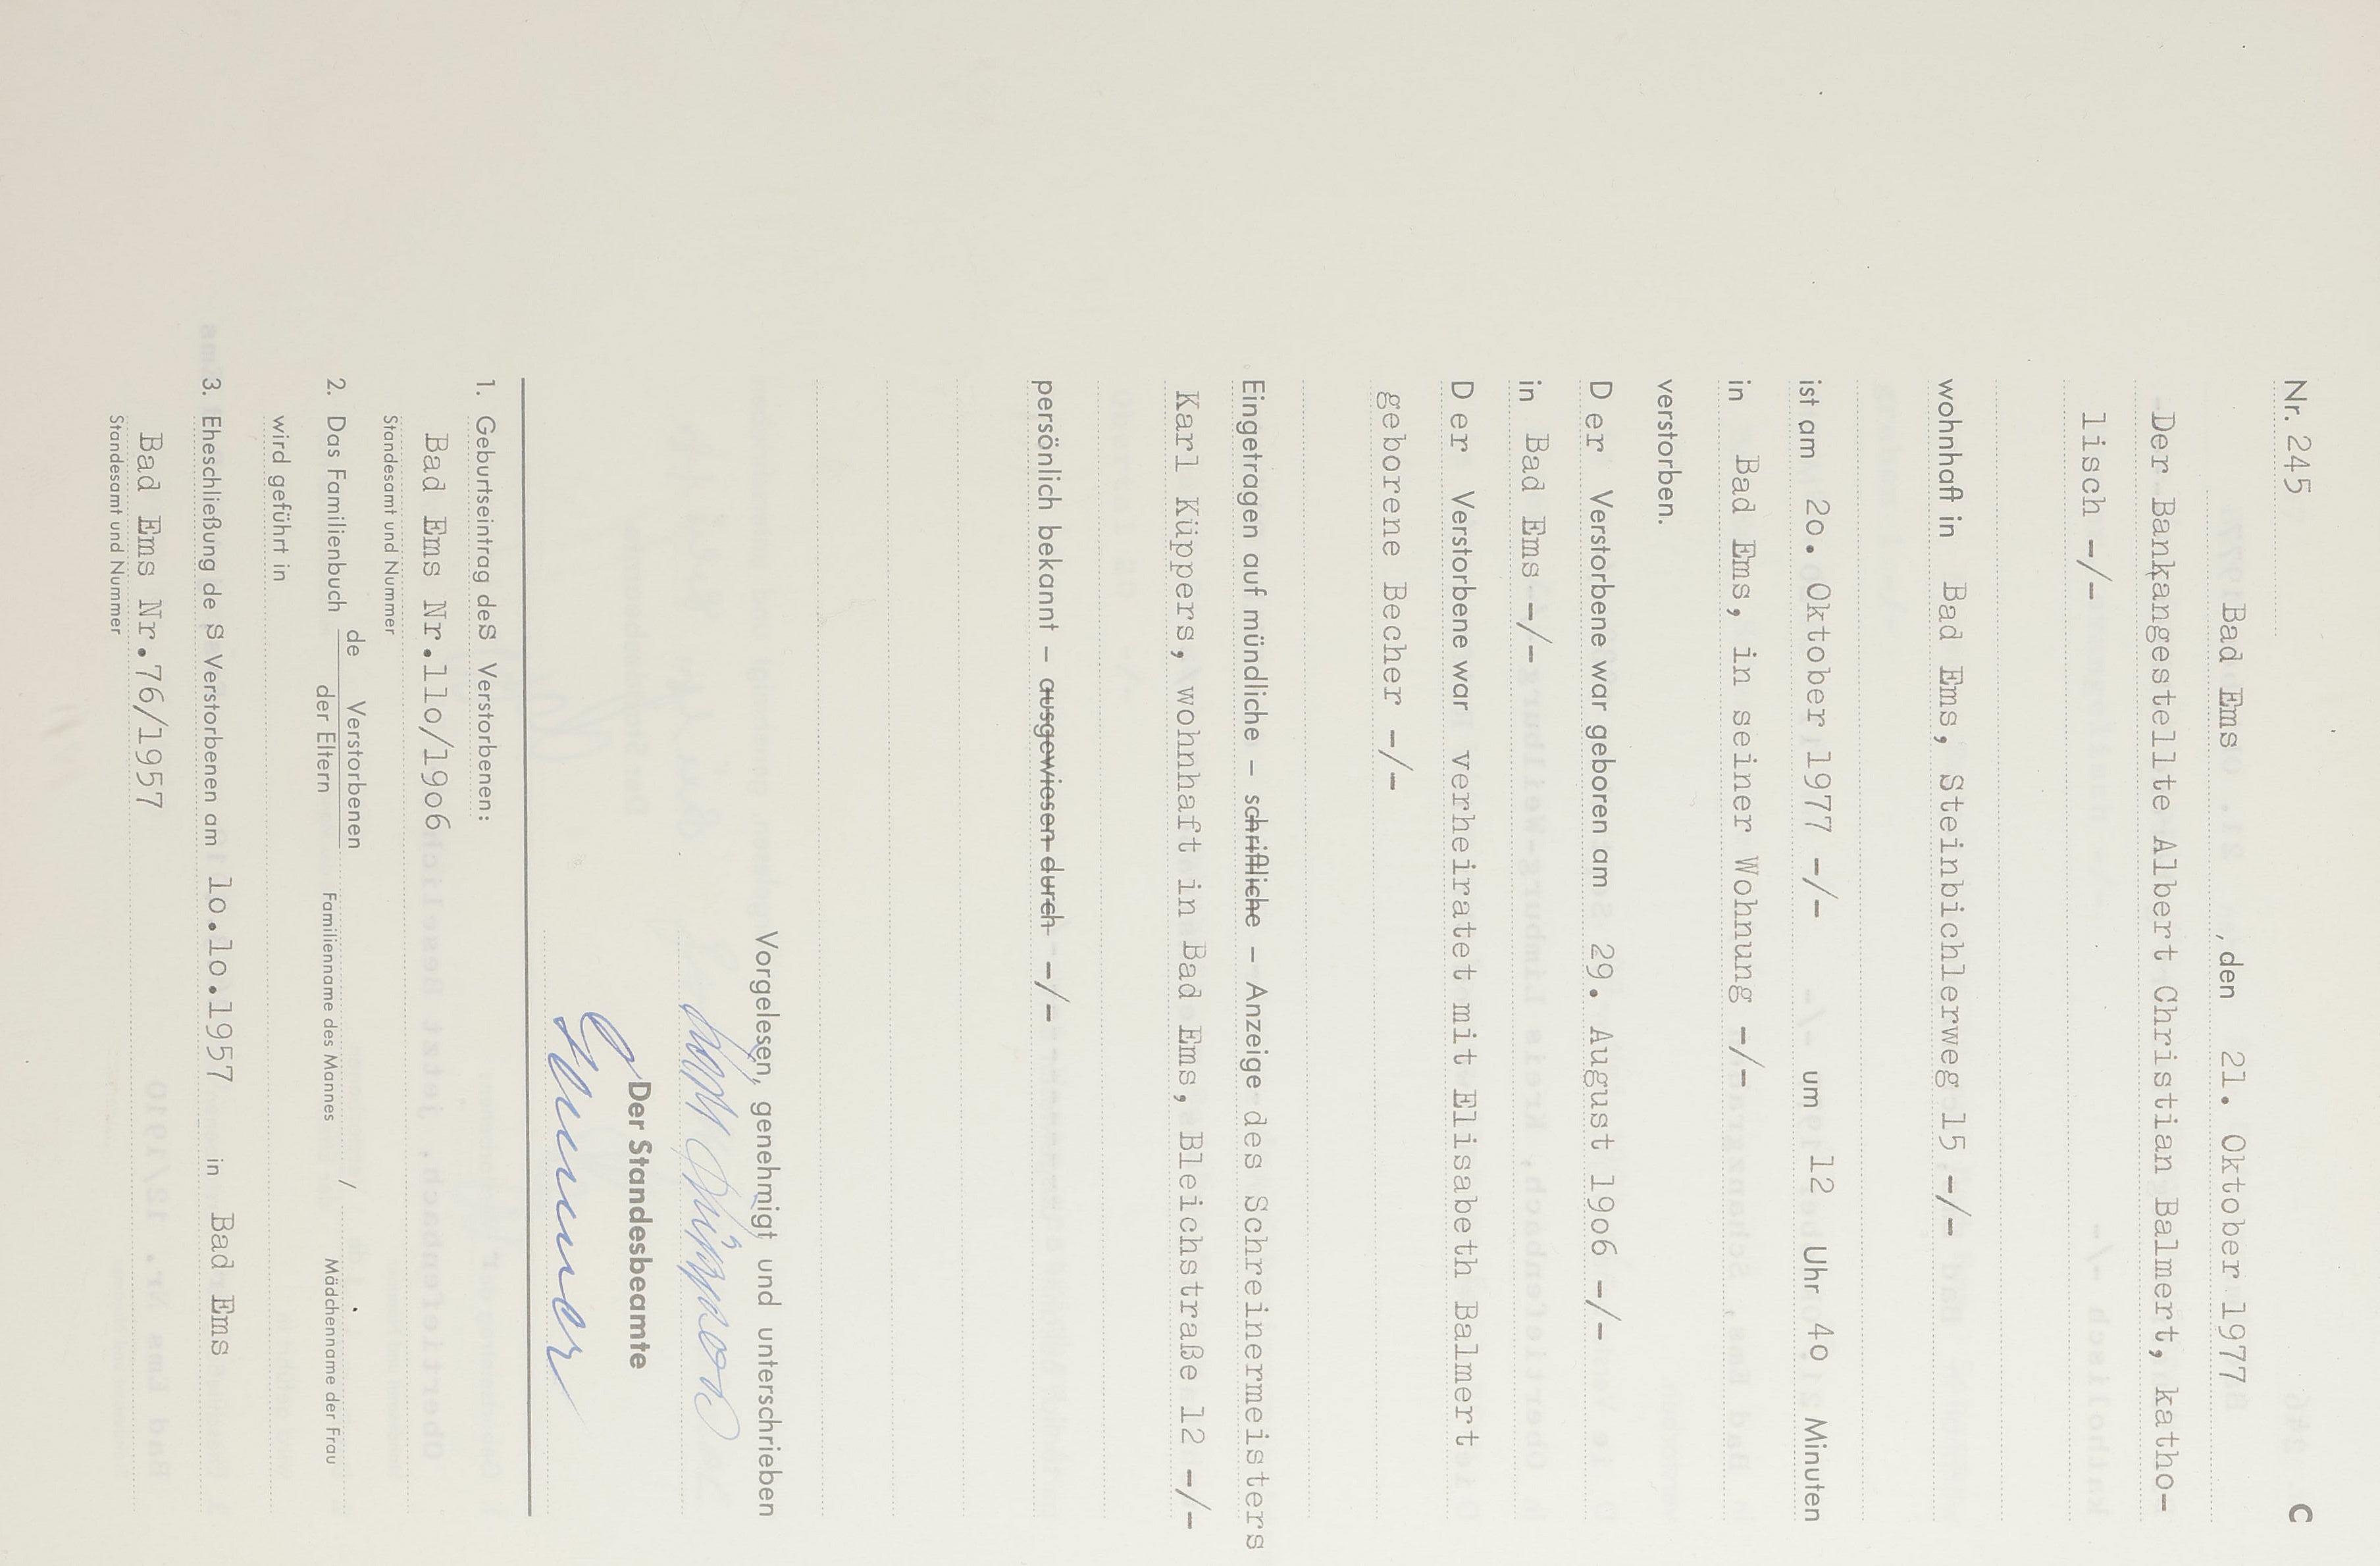 C
Nr. 245
Bad Ems, den 21. Oktober 1977
Der Bankangestellte Albert Christian Balmert, katho-
lisch -/-
wohnhaft in Bad Ems, Steinbichlerweg 15 -/-
ist am 2o. Oktober 1977 -/- um 12 Uhr 4o Minuten
in Bad Ems, in seiner Wohnung -/-
verstorben.
Der Verstorbene war geboren am 29. August 19o6 -/-
in Bad Ems -/-
Der Verstorbene war verheiratet mit Elisabeth Balmert
geborene Becher -/-
Eingetragen auf mündliche – schriftliche – Anzeige des Schreinermeisters
Karl Küppers, wohnhaft in Bad Ems, Bleichstraße 12 -/-
persönlich bekannt – ausgewiesen durch -/-
Vorgelesen, genehmigt und unterschrieben
Der Standesbeamte
1. Geburtseintrag des Verstorbenen:
Bad Ems Nr.11o/19o6
Standesamt und Nummer
2. Das Familienbuch de Verstorbenen
der Eltern
Familienname des Mannes / Mädchenname der Frau
wird geführt in
3. Eheschließung des Verstorbenen am 1o.1o.1957 in Bad Ems
Bad Ems Nr.76/1957
Standesamt und Nummer